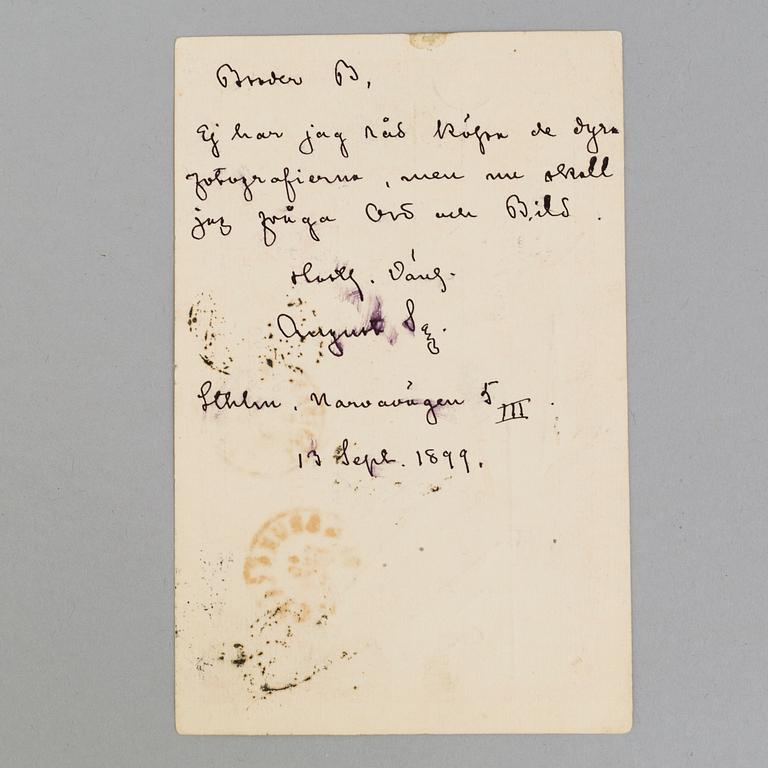 Broder B,
Ej har jag råd köpa de dyra
fotografierna, men nu skall
jag fråga Ord och Bild.
Vänl.
August Sg.
Sthlm, Narvavägen 5 III.
13 Sept. 1899.